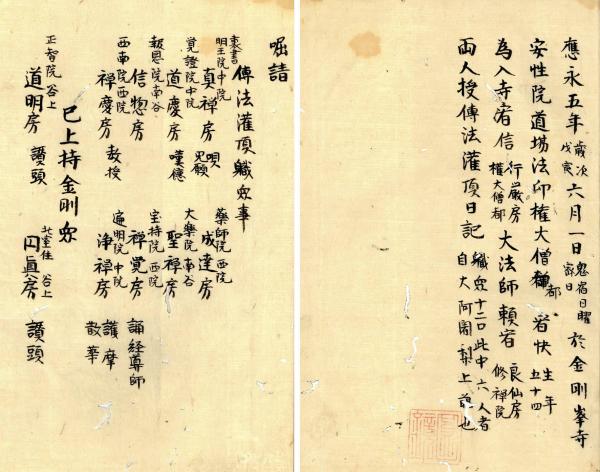 應永五年歳次戊寅六月一日鬼宿日曜密日於金剛峯寺
安性院道場法印権大僧都宥快生年五十四
為入寺宥信行厳房権大僧都大法師頼宥良仙房修禅院
両人授傳法灌頂日記軄衆十二口此中六人者自大阿闍梨上首也
啒請
傳法灌頂軄衆事
裏書
明王院中院 薬師院西院
真禅房 唄 成達房
覚證院中院 大楽院南谷
道慶房 嘆徳 聖禅房
報恩院南谷 宝持院西院
信惣房 禅覚房 誦経導師
西南院西院 遍明院中院
禅慶房 教授 浄禅房 護摩 散華
已上持金剛衆
正智院谷上 北室住谷上
道明房 讃頭 円眞房 讃頭